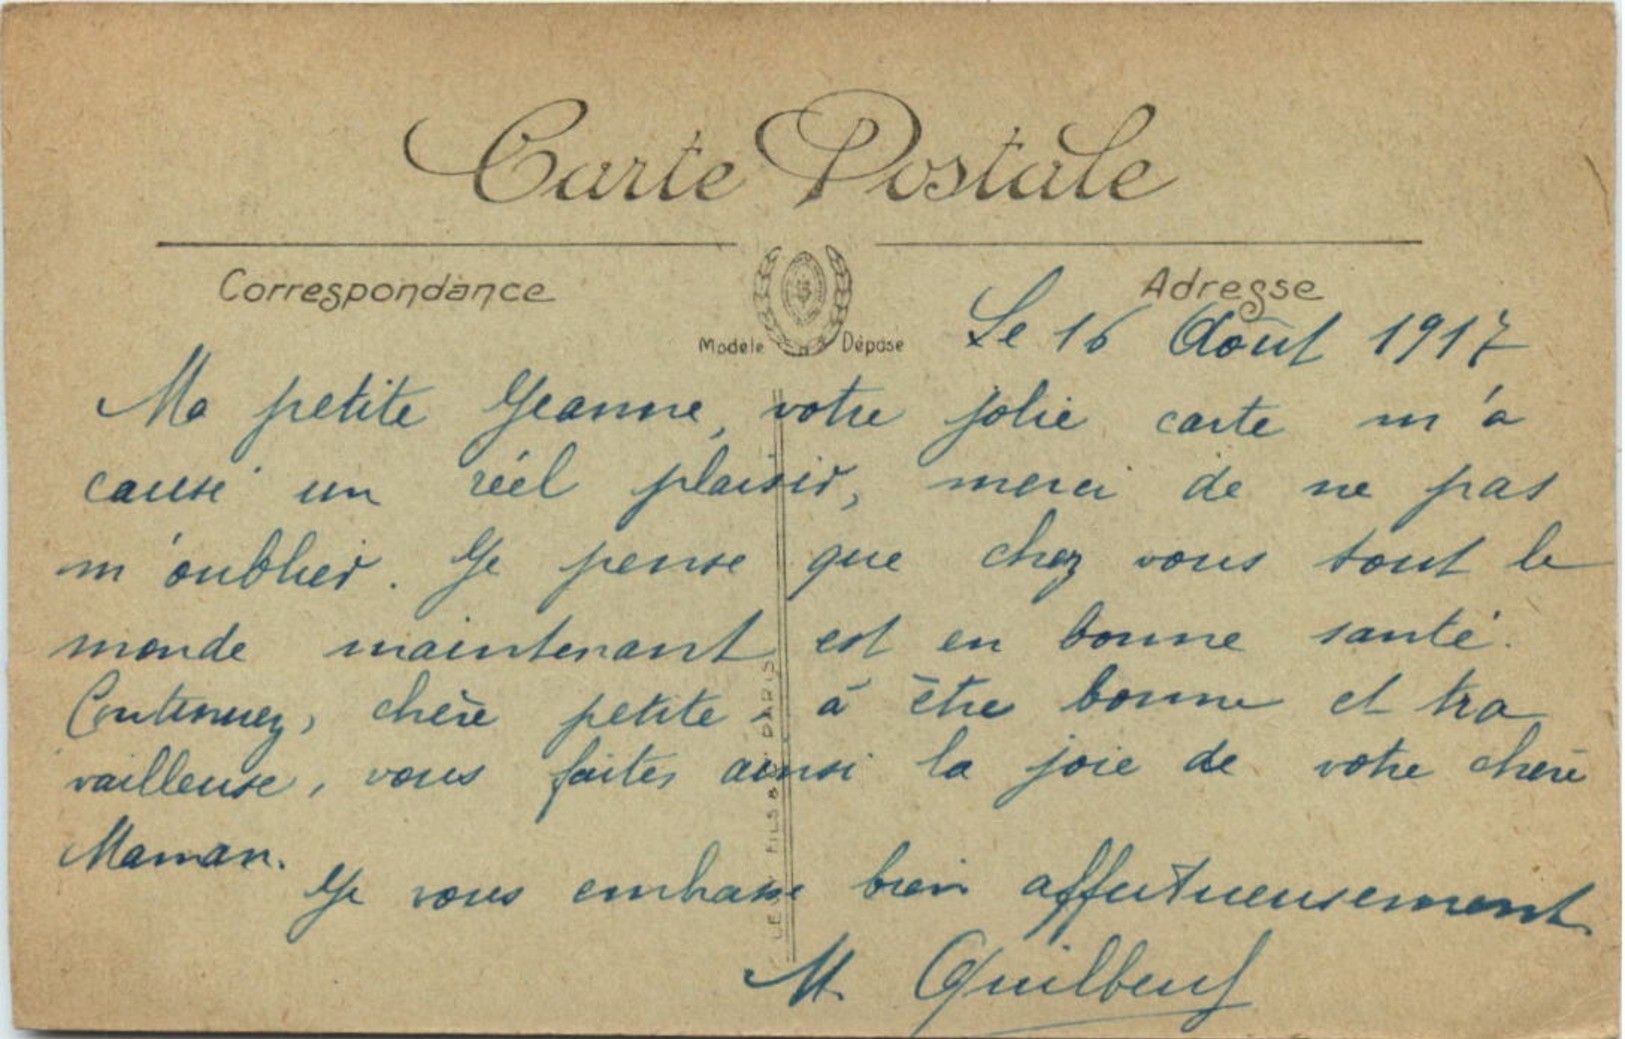 Carte Postale
Correspondance
Adresse
Modèle Déposé
Le 16 Août 1917
Ma petite Jeanne, votre jolie carte m'a
causé un réel plaisir, merci de ne pas
m'oublier. Je pense que chez vous tout le
monde maintenant est en bonne santé.
Continuez, chère petite à être bonne et tra
vailleuse, vous faites ainsi la joie de votre chère
Maman.
Je vous embrasse bien affectueusement
M. Quilbeuf
FILS PARIS